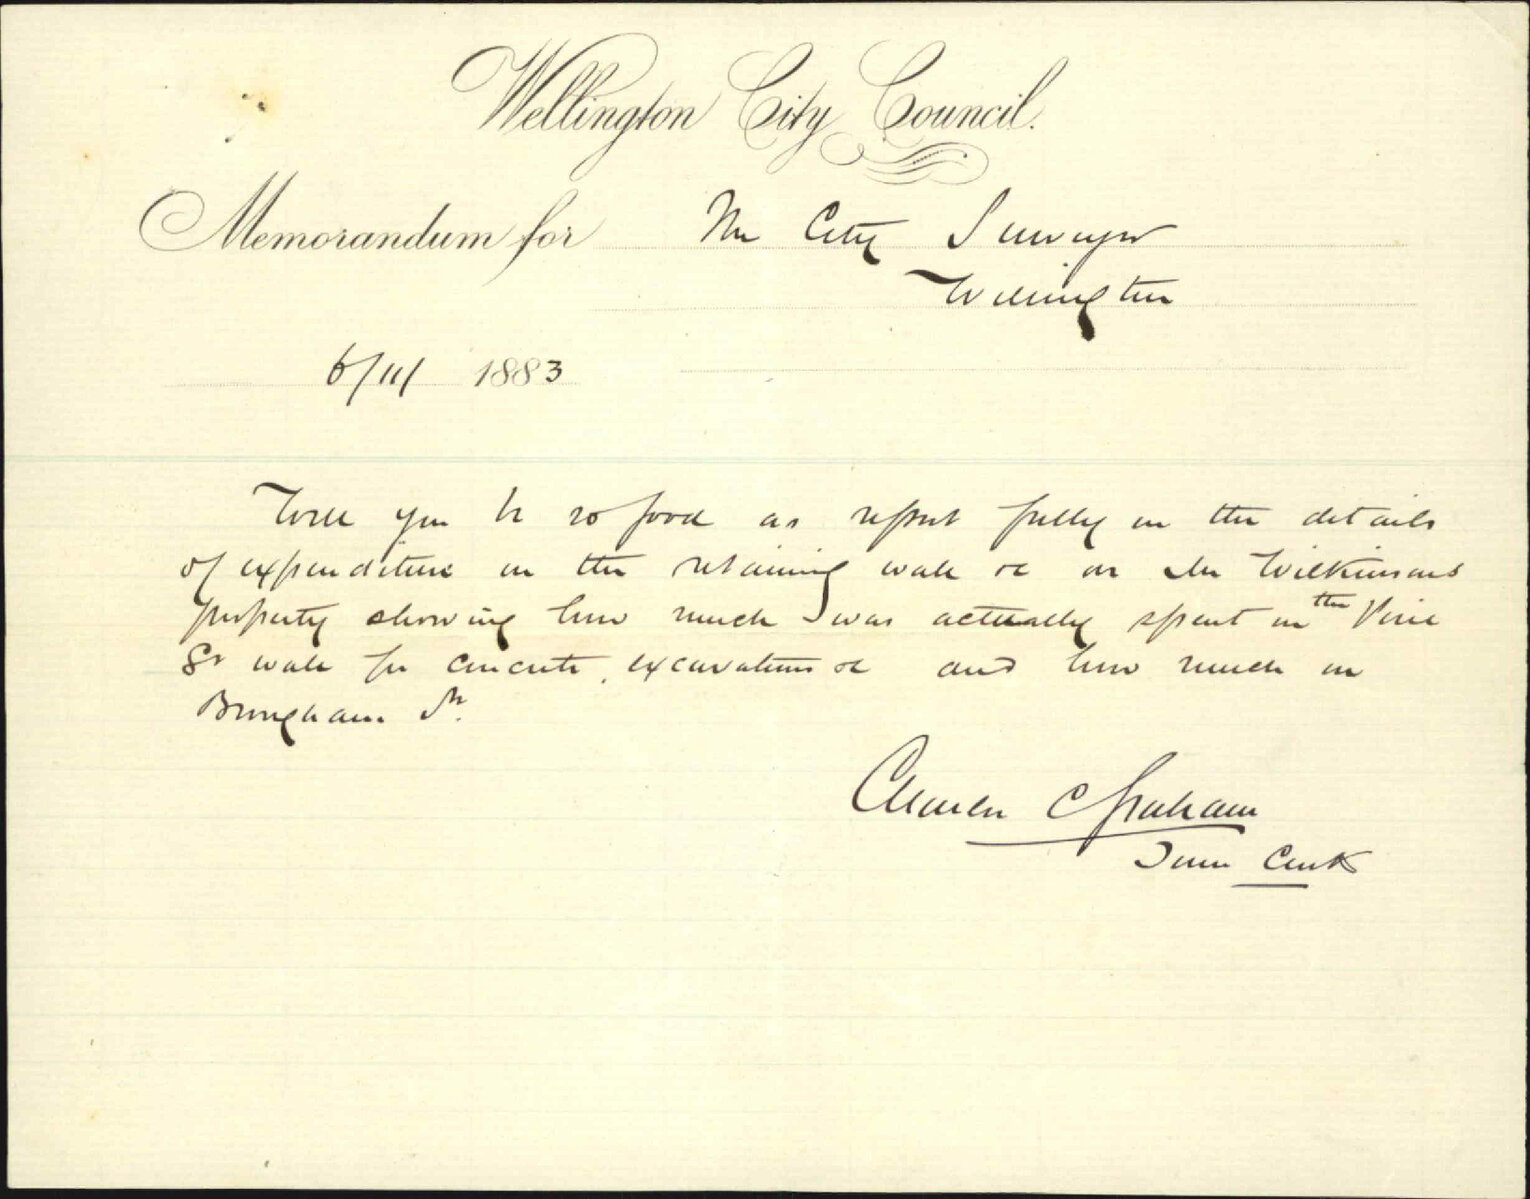 Wellington City Council.
Memorandum for The City Surveyor
Wellington
6/11/ 1883
Will you be so good as report fully on the details
of expenditure on the retaining wall &c on Mr Wilkinsons
property showing how much was actually spent on the Pirie
St wall for concrete, excavations &c and how much on
Brougham St.
Charles C Graham
Town Clerk